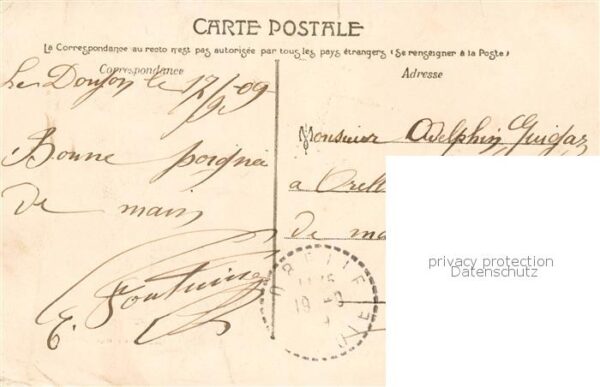 CARTE POSTALE
La Correspondance au recto n'est pas autorisée par tous les pays étrangers (Se renseigner à la Poste)
Correspondance
Adresse
Le Donjon le 17/9 09
Bonne poignée
de main
E. Fontaine
Monsieur Adelphin
a
de
privacy protection
Datenschutz